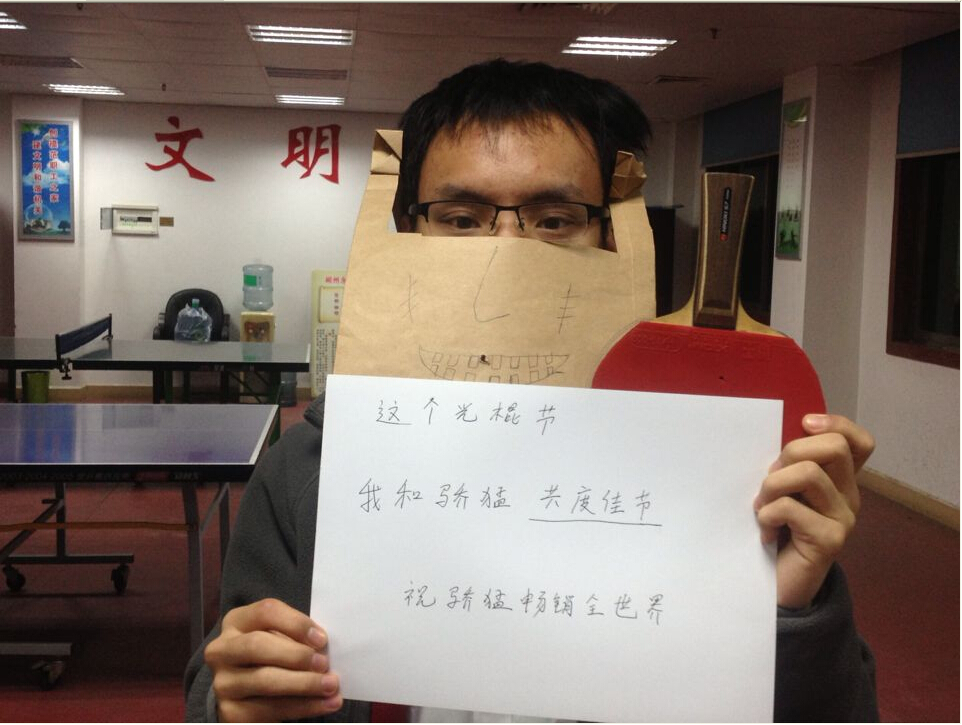 文明
这个光棍节
我和骄猛 共度佳节
祝骄猛畅销全世界